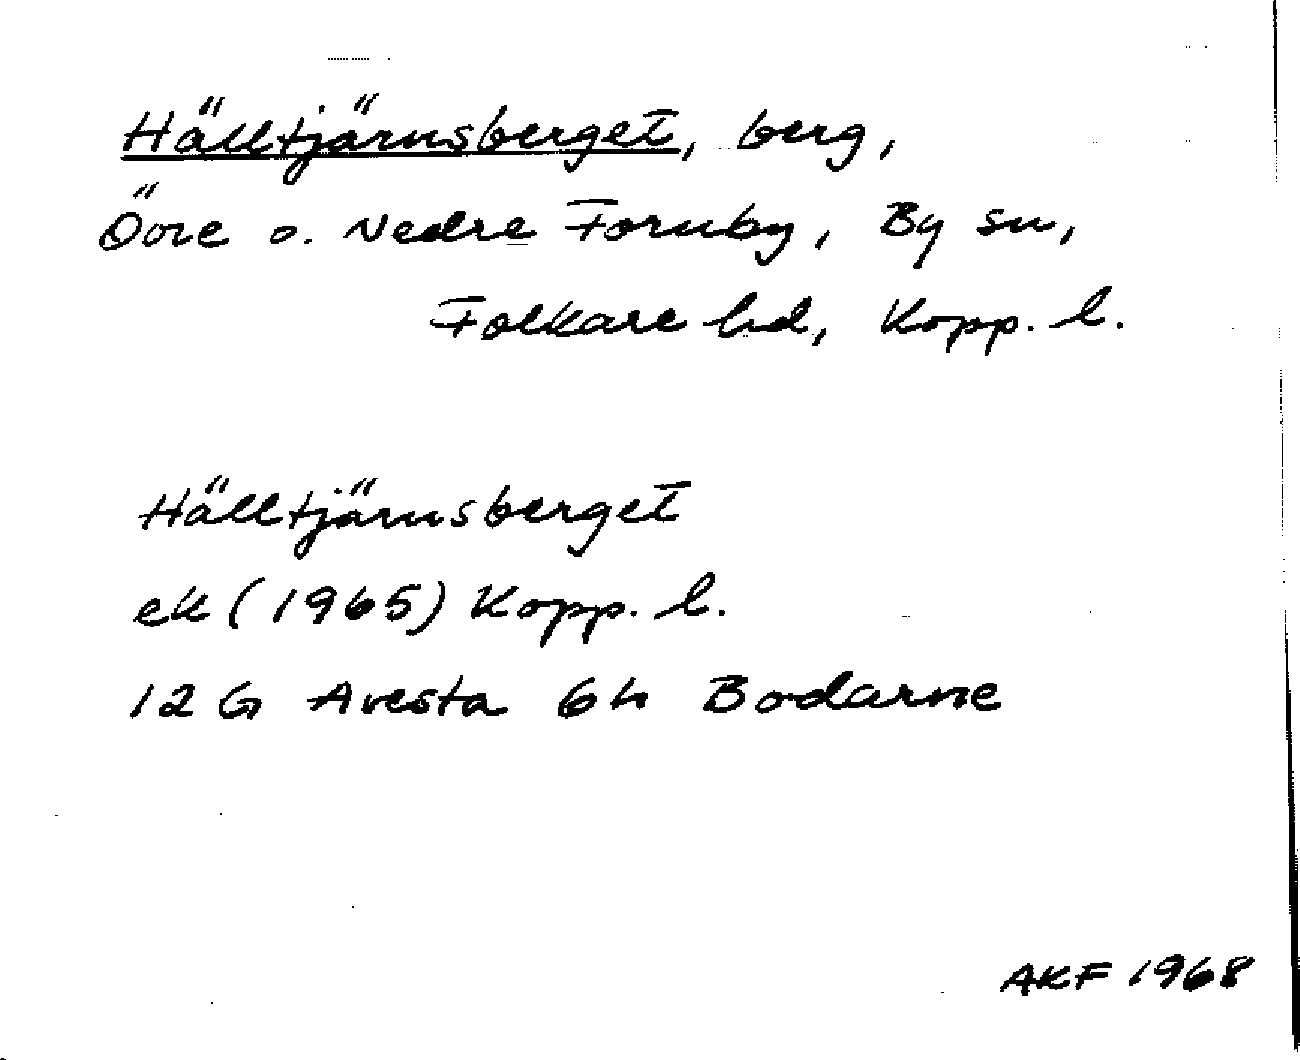 Hälltjärnsberget, berg,
Övre o. Nedre Fornby, By sn,
Folkare hd, Kopp. l.
Hälltjärnsberget
ek (1965) Kopp. l.
12 G Avesta 6h Bodarne
AKF 1968